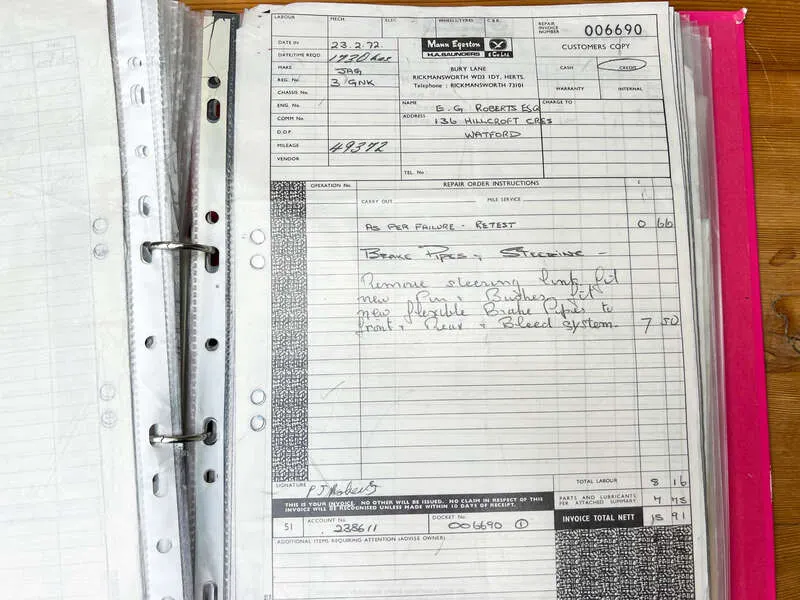 LABOUR MECH. ELEC. WHEELS/TYRES C.B.R.
REPAIR INVOICE NUMBER 006690
CUSTOMERS COPY
DATE IN 23.2.72.
DATE/TIME REQD 1730 hrs
MAKE JAG
REG. No. 3 GNK
CHASSIS No.
ENG. No.
COMM No.
D.O.P.
MILEAGE 49372
VENDOR
Mann Egerton
H.A. SAUNDERS & Co Ltd.
BURY LANE
RICKMANSWORTH WD3 1DY, HERTS.
Telephone : RICKMANSWORTH 73101
CASH CREDIT
WARRANTY INTERNAL
NAME E. G. ROBERTS ESQ
ADDRESS 136 HILLCROFT CRES
WATFORD
TEL. No
CHARGE TO
OPERATION No. REPAIR ORDER INSTRUCTIONS £
CARRY OUT MILE SERVICE
AS PER FAILURE - RETEST 0 66
BRAKE PIPES & STEERING -
Remove steering link, fit
new Pin & Bushes fit
new flexible Brake Pipes to
front & Rear & Bleed system. 7 50
SIGNATURE
TOTAL LABOUR 8 16
THIS IS YOUR INVOICE. NO OTHER WILL BE ISSUED. NO CLAIM IN RESPECT OF THIS
INVOICE WILL BE RECOGNISED UNLESS MADE WITHIN 10 DAYS OF RECEIPT.
PARTS AND LUBRICANTS
PER ATTACHED SUMMARY 7 75
INVOICE TOTAL NETT 15 91
51 ACCOUNT No. 238611 DOCKET No. 006690 ①
ADDITIONAL ITEMS REQUIRING ATTENTION (ADVISE OWNER)